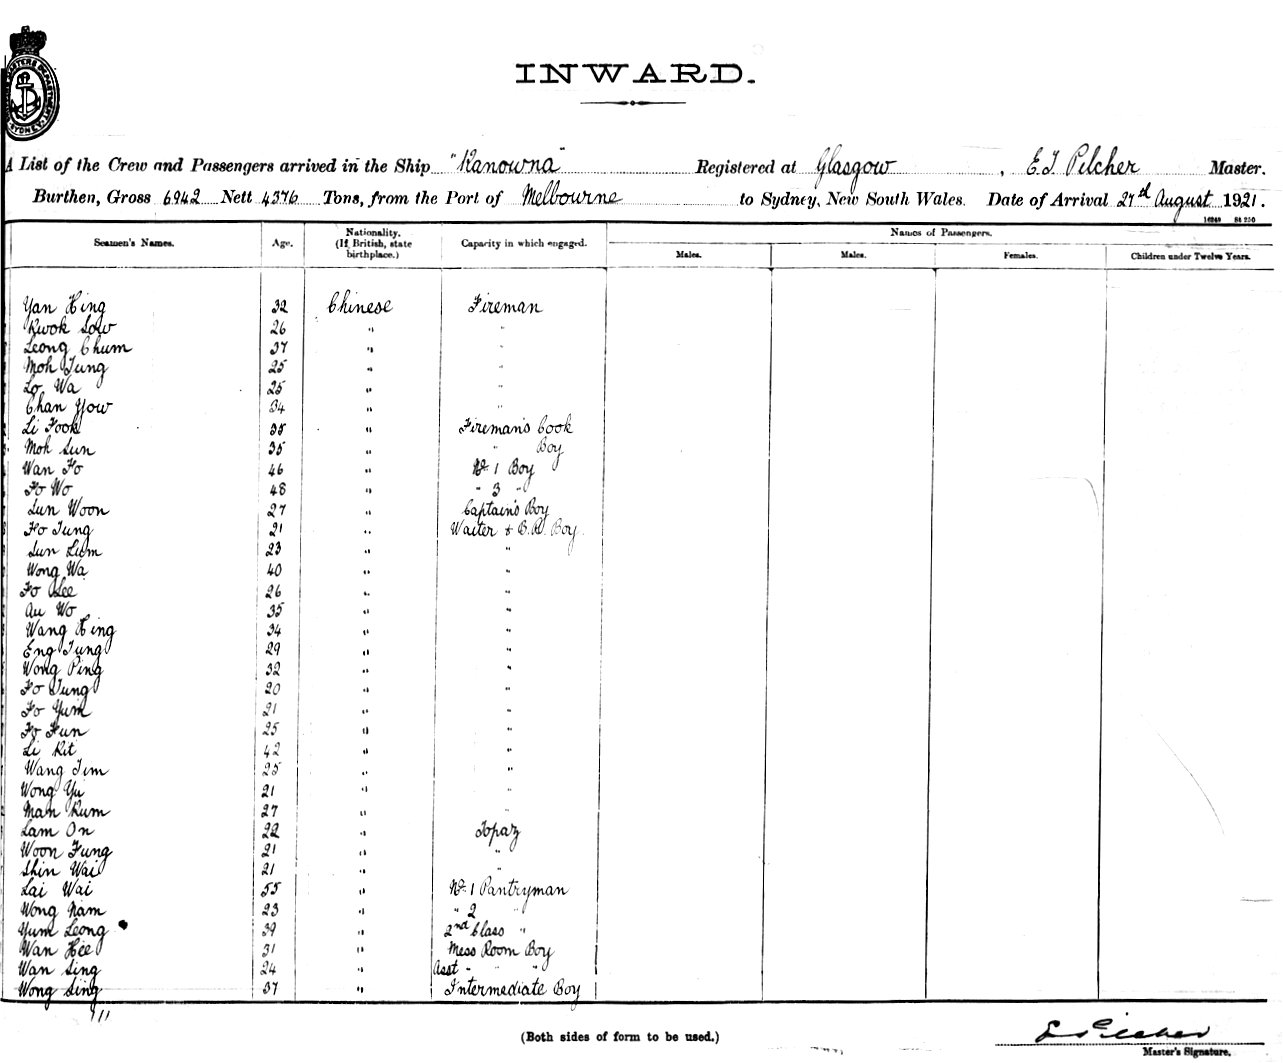 INWARD.
A List of the Crew and Passengers arrived in the Ship "Kanowna" Registered at Glasgow, E.J. Pilcher Master.
Burthen, Gross 6942 Nett 4376 Tons, from the Port of Melbourne to Sydney, New South Wales. Date of Arrival 27th August 1921.
Seamen's Names. Age. Nationality. (If British, state birthplace.) Capacity in which engaged. Names of Passengers.
Males. Males. Females. Children under Twelve Years.
Yan Hing 32 Chinese Fireman
Kwok Sow 26 " "
Leong Chum 37 " "
Moh Tung 25 " "
Lo Wa 25 " "
Chan Yow 34 " "
Li Fook 35 " Fireman's Cook
Moh Sun 35 " " Boy
Wan Fo 46 " No. 1 Boy
Fo Wo 48 " " 3 "
Sun Woon 27 " Captain's Boy
Ho Tung 21 " Waiter & B.R. Boy
Sun Lum 23 " "
Wong Wa 40 " "
Fo Lee 26 " "
Au Wo 35 " "
Wang Hing 34 " "
Eng Tung 29 " "
Wong Ping 32 " "
Fo Tung 20 " "
Fo Yum 21 " "
Fo Fun 25 " "
Li Kit 42 " "
Wang Tim 25 " "
Wong Yu 21 " "
Man Kum 27 " "
Lam On 22 " Topaz
Woon Fung 21 " "
Shin Wai 21 " "
Lai Wai 55 " No. 1 Pantryman
Wong Nam 23 " " 2 "
Yum Leong 39 " 2nd Class "
Wan Hee 31 " Mess Room Boy
Wan Sing 24 " Asst " " "
Wong Sing 37 " Intermediate Boy
(Both sides of form to be used.)
E J Pilcher
Master's Signature.